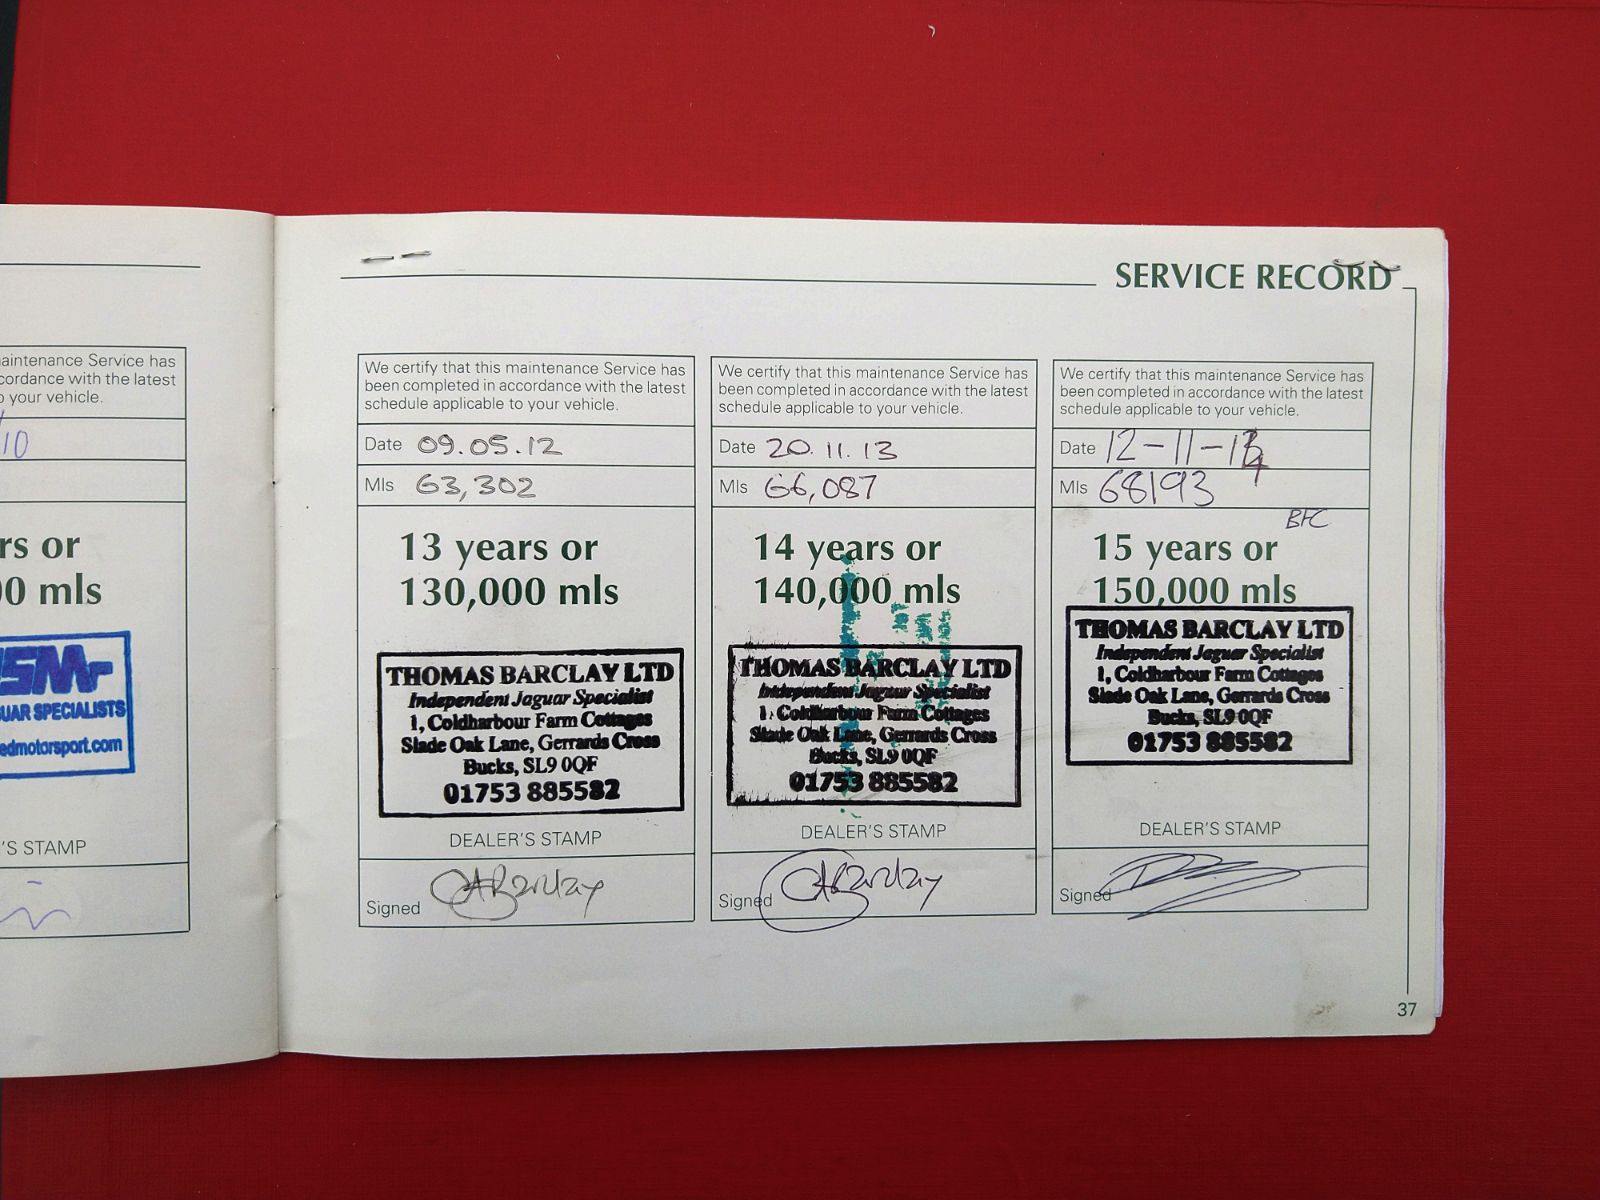 aintenance Service has
cordance with the latest
your vehicle.
/10
rs or
00 mls
SMr
UAR SPECIALISTS
edmotorsport.com
'S STAMP
SERVICE RECORD
We certify that this maintenance Service has
been completed in accordance with the latest
schedule applicable to your vehicle.
Date 09.05.12
Mls 63,302
13 years or
130,000 mls
THOMAS BARCLAY LTD
Independent Jaguar Specialist
1, Coldharbour Farm Cottages
Slade Oak Lane, Gerrards Cross
Bucks, SL9 0QF
01753 885582
DEALER'S STAMP
Signed ABarclay
We certify that this maintenance Service has
been completed in accordance with the latest
schedule applicable to your vehicle.
Date 20.11.13
Mls 66,087
14 years or
140,000 mls
THOMAS BARCLAY LTD
Independent Jaguar Specialist
1, Coldharbour Farm Cottages
Slade Oak Lane, Gerrards Cross
Bucks, SL9 0QF
01753 885582
DEALER'S STAMP
Signed ABarclay
We certify that this maintenance Service has
been completed in accordance with the latest
schedule applicable to your vehicle.
Date 12-11-14
Mls 68193
15 years or
150,000 mls
THOMAS BARCLAY LTD
Independent Jaguar Specialist
1, Coldharbour Farm Cottages
Slade Oak Lane, Gerrards Cross
Bucks, SL9 0QF
01753 885582
DEALER'S STAMP
Signed
37